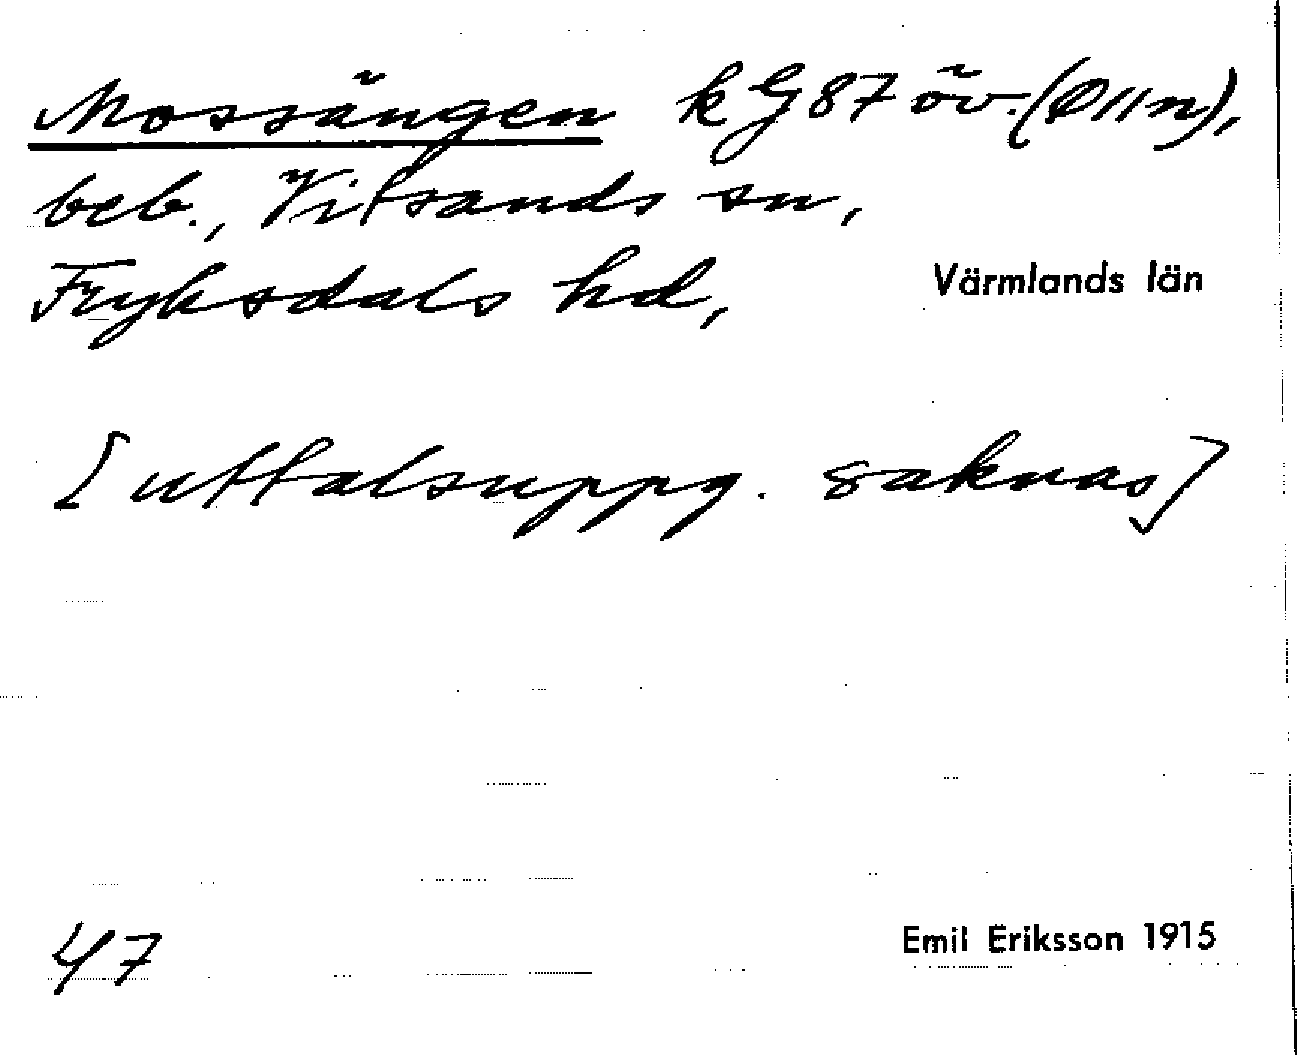 Mossängen kG87 öv. (Ø11n),
beb., Vitsands sn,
Fryksdals hd, Värmlands län
[uttalsuppg. saknas]
47 Emil Eriksson 1915